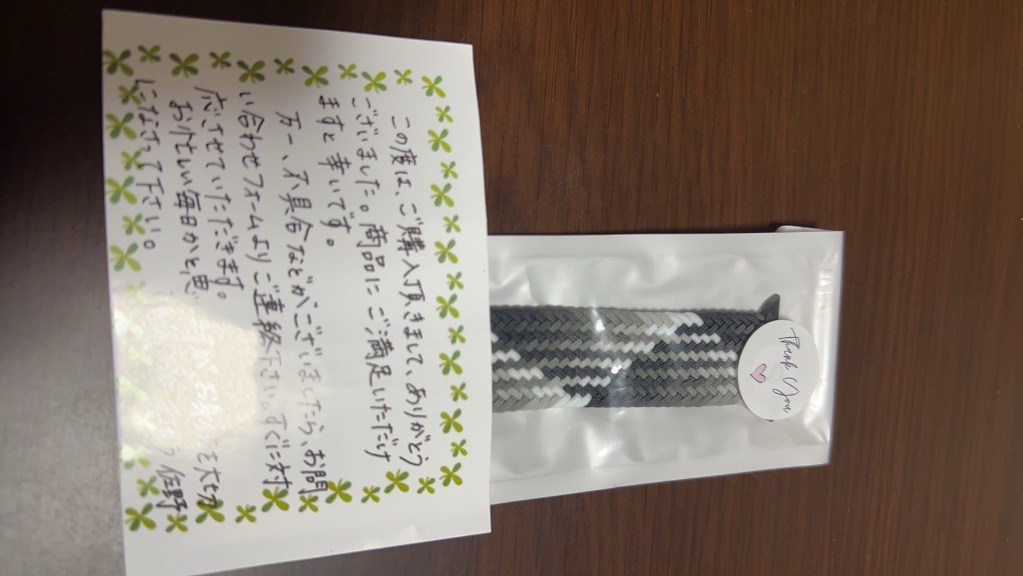 この度は、ご購入頂きまして、ありがとう
ございました。商品にご満足いただけ
ますと幸いです。
万一、不具合などがございましたら、お問
い合わせフォームよりご連絡下さい。すぐに対
応させていただきます。
お忙しい毎日かと思
を大切
になさって下さい。
佐野
Thank You